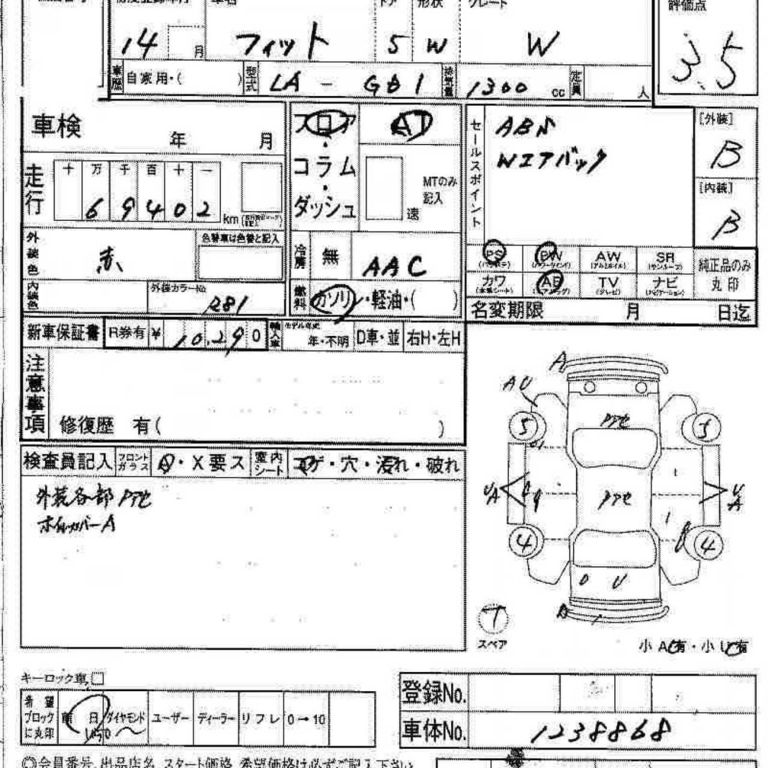 ドア 形状 グレード
評価点
14 月 フィット 5 W W
3.5
車歴 自家用・( ) 型式 LA - GD1 排気量 1300 cc 定員 人
車検 年 月
フロア AT
・
コラム
・
ダッシュ
MTのみ
記入
速
セールスポイント
ABS
Wエアバック
[外装]
B
[内装]
B
走行 十 万 千 百 十 一
69402 km
外装色 赤 色替車は色替と記入
内装色 外装カラーNo. R81
冷房 無 AAC
燃料 ガソリン・軽油・( )
PS PW AW SR
カワ AB TV ナビ
純正品のみ
丸印
名変期限 月 日迄
新車保証書 R券有 ¥ 10,290 輸入車 モデル年式 年・不明 D車・並 右H・左H
注意事項
修復歴 有( )
検査員記入 フロントガラス A・X要ス 室内シート コゲ・穴・汚れ・破れ
外装各部
ホイルカバーA
A
AU
5 5
UA UA
4 4
U
T
スペア
小A有・小U有
キーロック車 □
希望
ブロック
に丸印
ダイヤモンド ユーザー ディーラー リフレ 0→10
登録No.
車体No. 1238868
◎会員番号、出品店名、スタート価格、希望価格は必ずご記入下さい